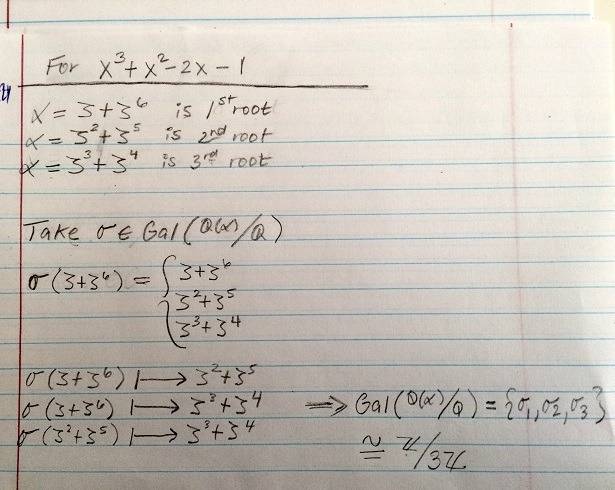 For x³+x²-2x-1
α = ζ+ζ⁶ is 1st root
α = ζ²+ζ⁵ is 2nd root
α = ζ³+ζ⁴ is 3rd root
Take σ ∈ Gal(Q(α)/Q)
σ(ζ+ζ⁶) = { ζ+ζ⁶
ζ²+ζ⁵
ζ³+ζ⁴
σ(ζ+ζ⁶) ↦ ζ²+ζ⁵
σ(ζ+ζ⁶) ↦ ζ³+ζ⁴ ⇒ Gal(Q(α)/Q) = {σ₁,σ₂,σ₃}
σ(ζ²+ζ⁵) ↦ ζ³+ζ⁴
≅ ℤ/3ℤ